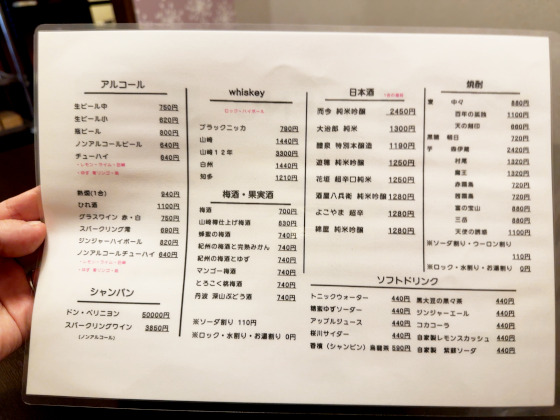 アルコール
生ビール中 750円
生ビール小 620円
瓶ビール 900円
ノンアルコールビール 640円
チューハイ 640円
・レモン・ライム・巨峰
・ゆず 青リンゴ・桃
熱燗(1合) 940円
ひれ酒 1100円
グラスワイン 赤・白 750円
スパークリング濁 690円
ジンジャーハイボール 820円
ノンアルコールチューハイ 640円
・レモン・ライム・巨峰
・ゆず 青リンゴ・桃
シャンパン
ドン・ペリニヨン 50000円
スパークリングワイン 3850円
(ノンアルコール)
whiskey
ロック・ハイボール
ブラックニッカ 790円
山崎 1440円
山崎12年 3300円
白州 1440円
知多 1210円
梅酒・果実酒
梅酒 700円
山崎樽仕上げ梅酒 830円
蜂蜜の梅酒 740円
紀州の梅酒と完熟みかん 740円
紀州の梅酒とゆず 740円
マンゴー梅酒 740円
とろこく桃梅酒 740円
丹波 深山ぶどう酒 740円
※ソーダ割り 110円
※ロック・水割り・お湯割り 0円
日本酒
而今 純米吟醸 2450円
大治郎 純米 1300円
醴泉 特別本醸造 1190円
遊穂 純米吟醸 1250円
花垣 超辛口純米 1250円
酒屋八兵衛 純米吟醸 1280円
よこやま 超辛 1280円
綿屋 純米吟醸 1280円
焼酎
麦 中々 880円
百年の孤独 1100円
天の刻印 880円
黒糖 朝日 720円
芋 森伊蔵 2420円
村尾 1320円
魔王 1320円
赤霧島 720円
茜霧島 720円
富の宝山 880円
三岳 880円
天使の誘惑 1100円
※ソーダ割り・ウーロン割り
110円
※ロック・水割り・お湯割り 0円
ソフトドリンク
トニックウォーター 440円
蜂蜜ゆずソーダー 440円
アップルジュース 440円
桜川サイダー 440円
香檳(シャンピン)烏龍茶 590円
黒大豆の黒々茶 440円
ジンジャーエール 440円
コカコーラ 440円
自家製レモンスカッシュ 440円
自家製 紫蘇ソーダ 440円